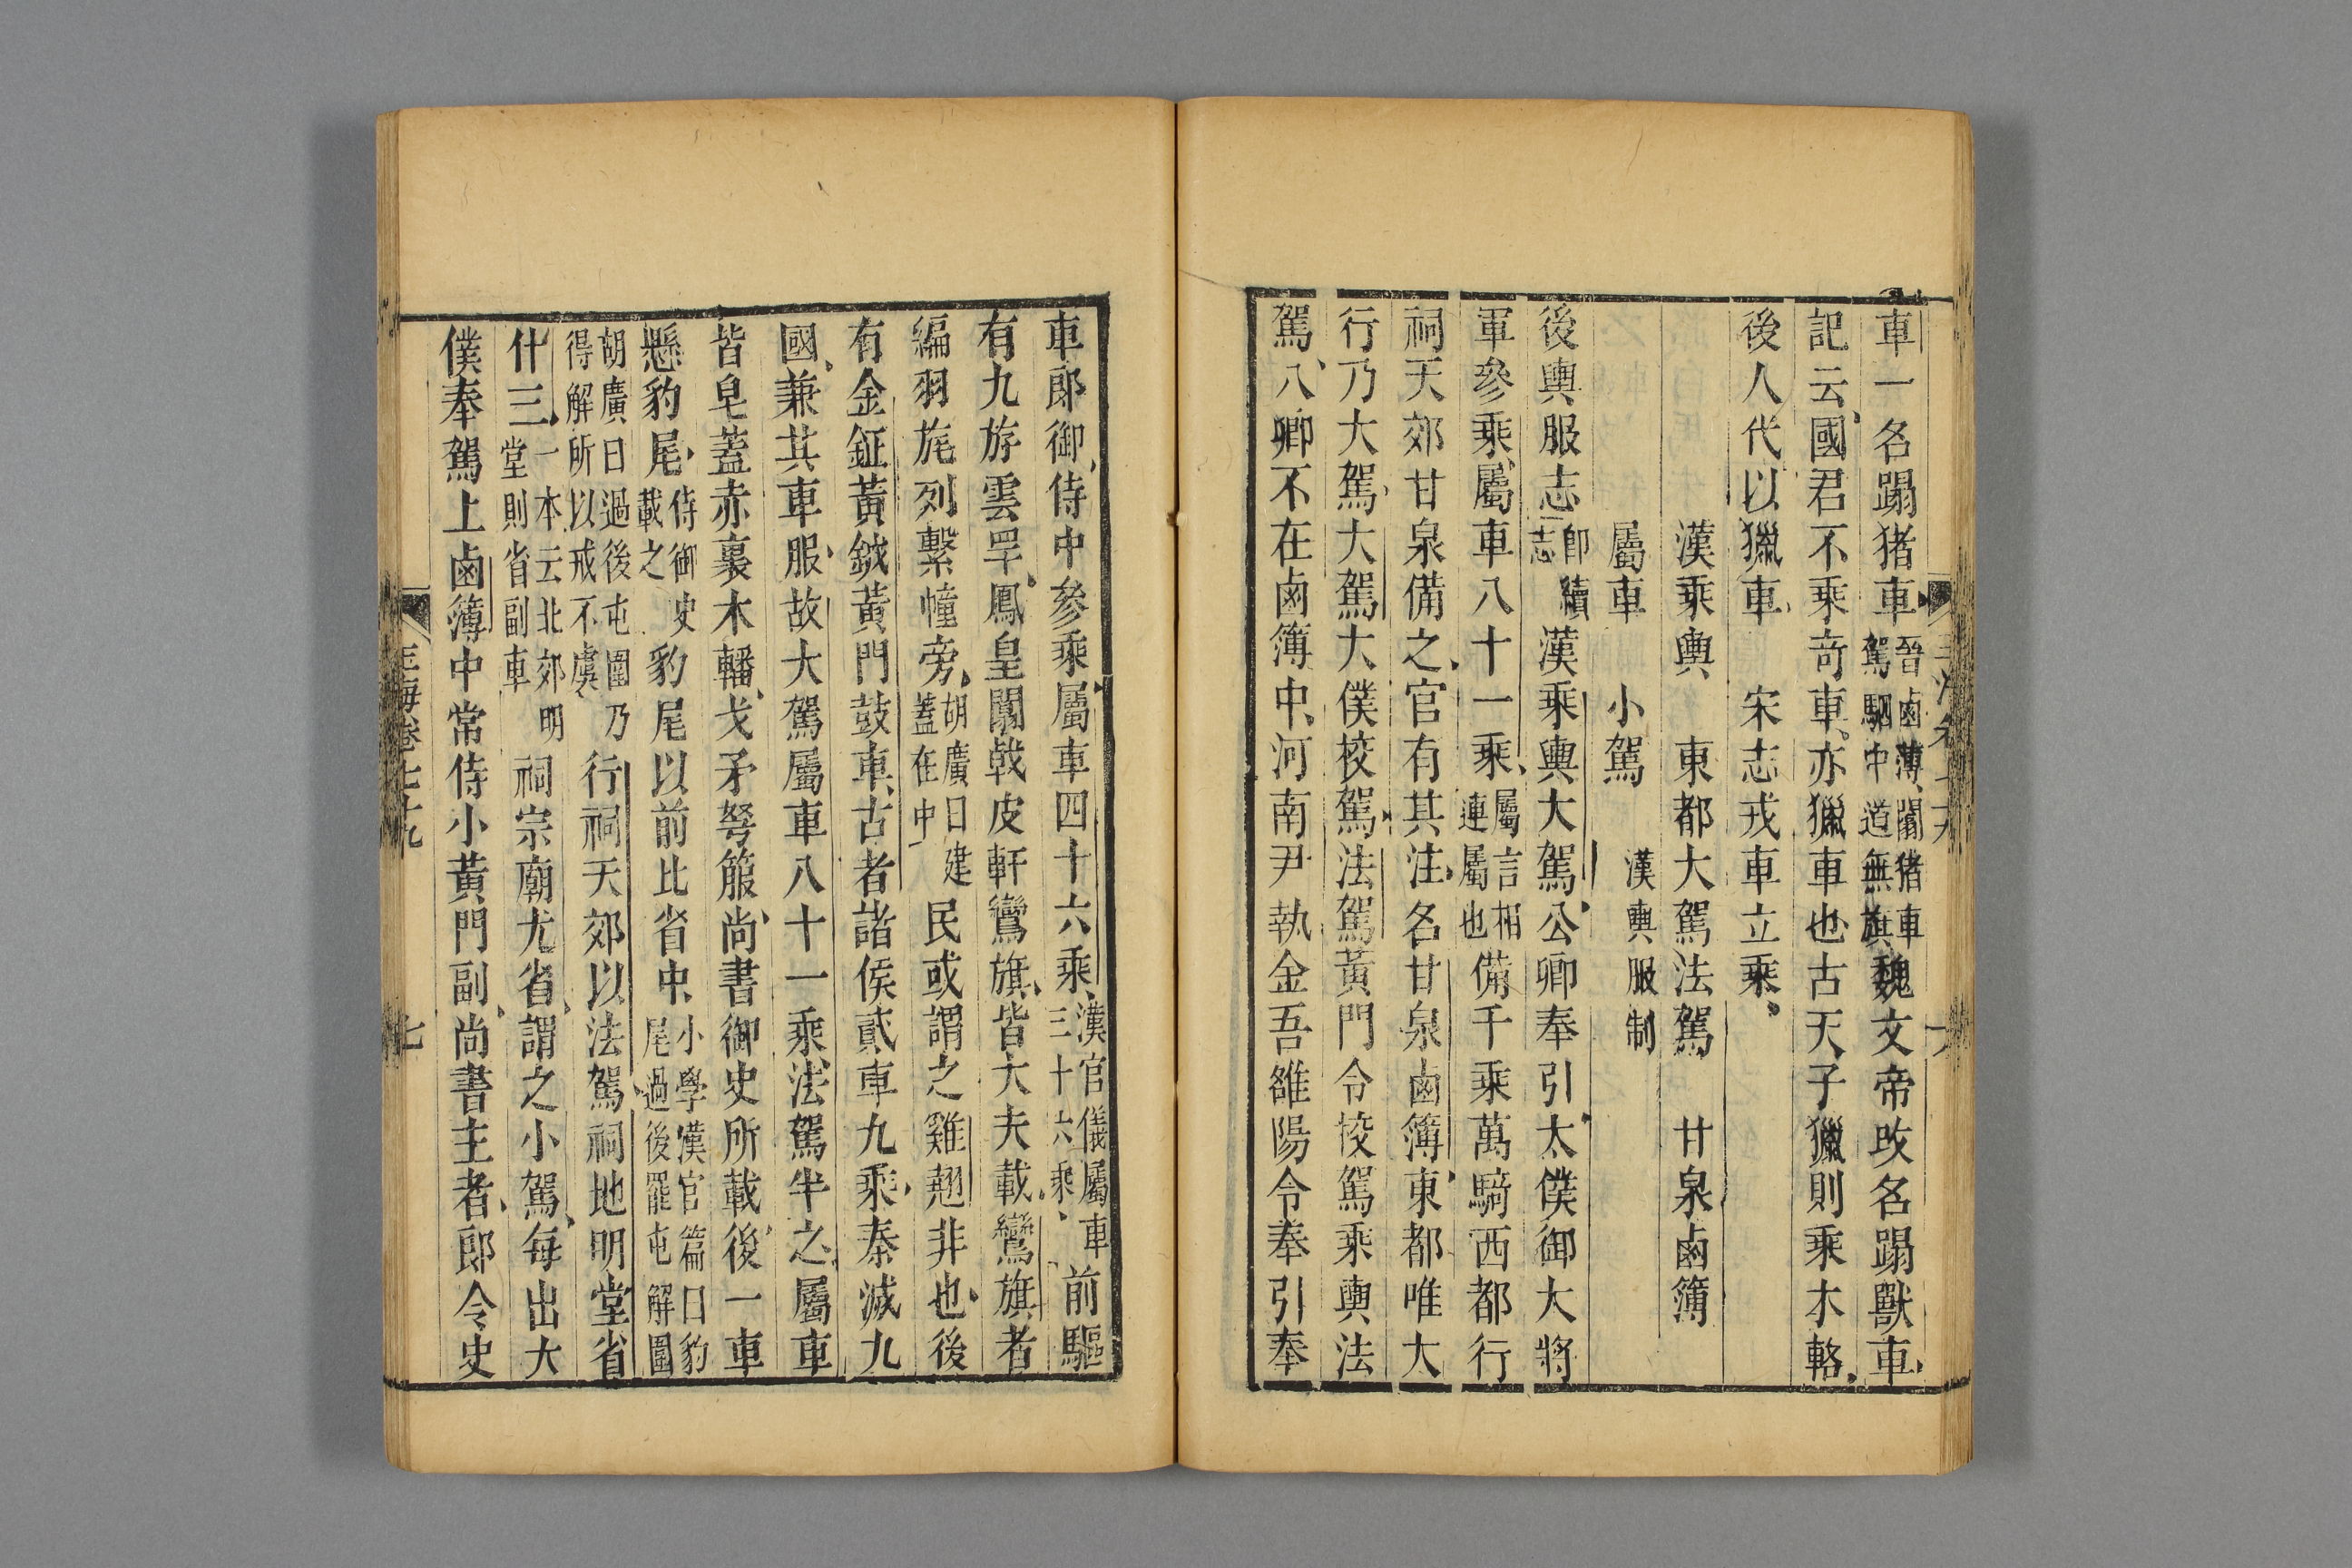 車一名蹋猪車晉鹵薄闟猪車駕駟中道無旗魏文帝改名蹋獸車
記云國君不乘奇車亦獵車也古天子獵則乘木輅
後人代以獵車　宋志戎車立乘
漢乘輿　東都大駕法駕　甘泉鹵簿
屬車　小駕　漢輿服制
後輿服志即續志漢乘輿大駕公卿奉引太僕御大將
軍參乘屬車八十一乘屬言相連屬也備千乘萬騎西都行
祠天郊甘泉備之官有其注名甘泉鹵簿東都唯大
行乃大駕大駕大僕校駕法駕黃門令校駕乘輿法
駕八卿不在鹵簿中河南尹執金吾雒陽令奉引奉
車郎御侍中參乘屬車四十六乘漢官儀屬車三十六乘前驅
有九斿雲罕鳳皇闟戟皮軒鸞旗皆大夫載鸞旗者
編羽旄列繫幢旁胡廣曰建蓋在中民或謂之雞翹非也後
有金鉦黃鉞黃門鼓車古者諸侯貳車九乘秦滅九
國兼其車服故大駕屬車八十一乘法駕半之屬車
皆皂蓋赤裏木轓戈矛弩箙尚書御史所載後一車
懸豹尾侍御史載之豹尾以前比省中小學漢官篇曰豹尾過後罷屯解圍
胡廣曰過後屯圍乃得解所以戒不虞行祠天郊以法駕祠地明堂省
什三一本云北郊明堂則省副車祠宗廟尤省謂之小駕每出大
僕奉駕上鹵簿中常侍小黃門副尚書主者郎令史
玉海卷七十九
七